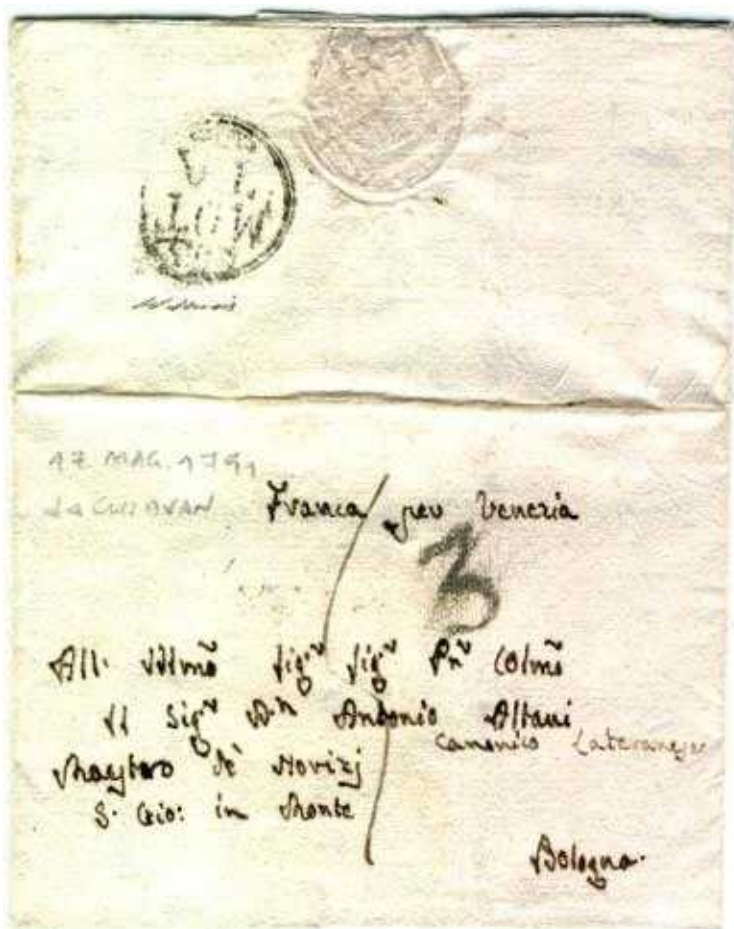 17. MAG. 1791
Franca per Venezia
3
All. Illmõ Sig.r Sig.r Pn͂ Colmõ
Il Sig.r Dn Antonio Altani
Canonico Lateranese
Maestro de Novizj
S. Gio: in Monte
Bologna.